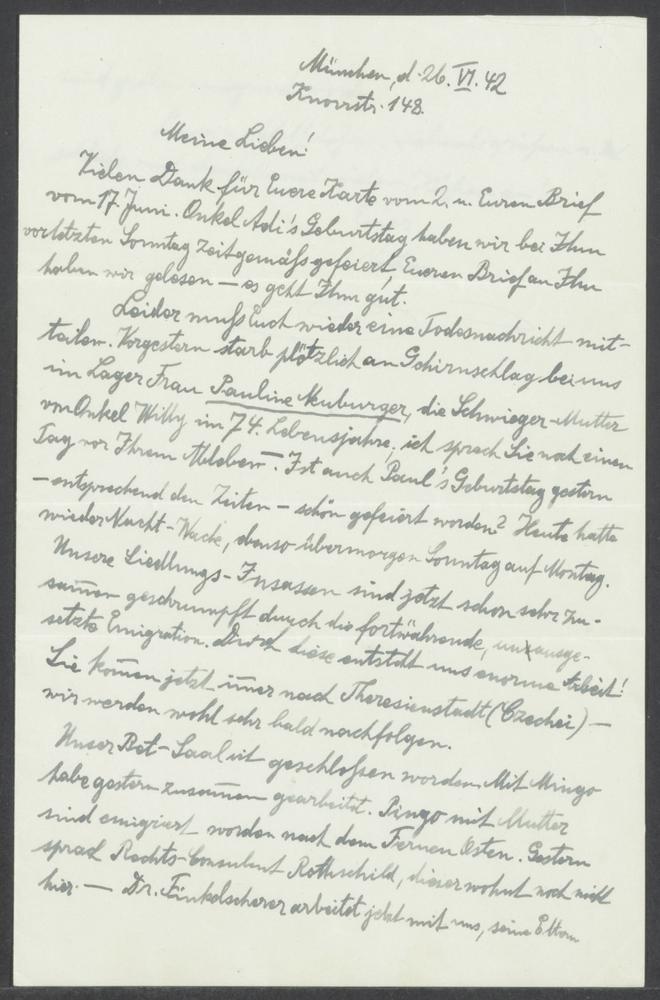 München, d. 26. VI. 42
Knorrstr. 148.
Meine Lieben!
Vielen Dank für Euere Karte vom 2. u. Euren Brief
vom 17. Juni. Onkel Adi's Geburtstag haben wir bei Ihm
vorletzten Sonntag zeitgemäß gefeiert, Eueren Brief an Ihn
haben wir gelesen — es geht Ihm gut.
Leider muß Euch wieder eine Todesnachricht mit-
teilen. Vorgestern starb plötzlich an Gehirnschlag bei uns
im Lager Frau Pauline Neuburger, die Schwieger-Mutter
von Onkel Willy im 74. Lebensjahre, ich sprach Sie noch einen
Tag vor Ihrem Ableben. — Ist auch Paul's Geburtstag gestern
— entsprechend den Zeiten — schön gefeiert worden? Heute hatte
wieder Nacht-Wache, ebenso übermorgen Sonntag auf Montag.
Unsere Siedlungs-Insassen sind jetzt schon sehr zu-
sam̄en geschrumpft durch die fortwährende, unausge-
setzte Emigration. Durch diese entsteht uns enorme Arbeit!
Sie kom̄en jetzt im̄er nach Theresienstadt (Czechei) —
wir werden wohl sehr bald nachfolgen.
Unser Bet-Saal ist geschlossen worden. Mit Mingo
habe gestern zusam̄en gearbeitet. Pingo mit Mutter
sind emigriert worden nach dem Fernen Osten. Gestern
sprach Rechts-Consulent Rothschild, dieser wohnt noch nicht
hier. — Dr. Finkelscherer arbeitet jetzt mit uns, seine Eltern